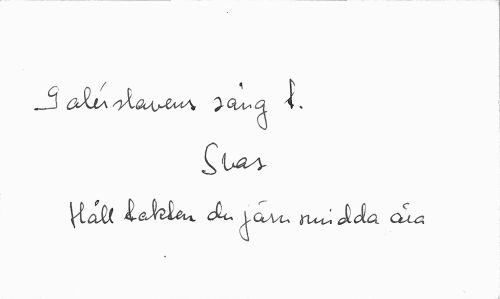 Galérslavens sång t.
Svas
Håll takten du järnsmidda åra